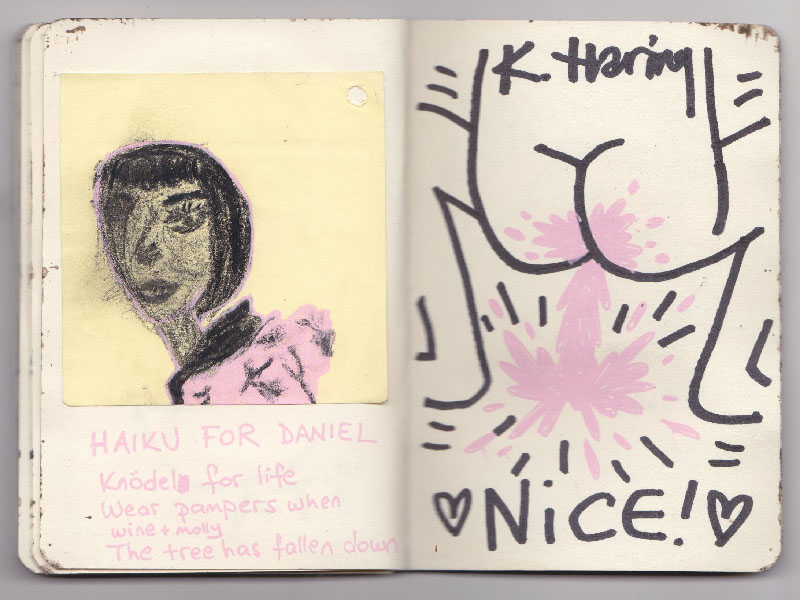 HAIKU FOR DANIEL
Knödel for life
Wear pampers when
wine + molly
The tree has fallen down
K. Haring
NiCE!